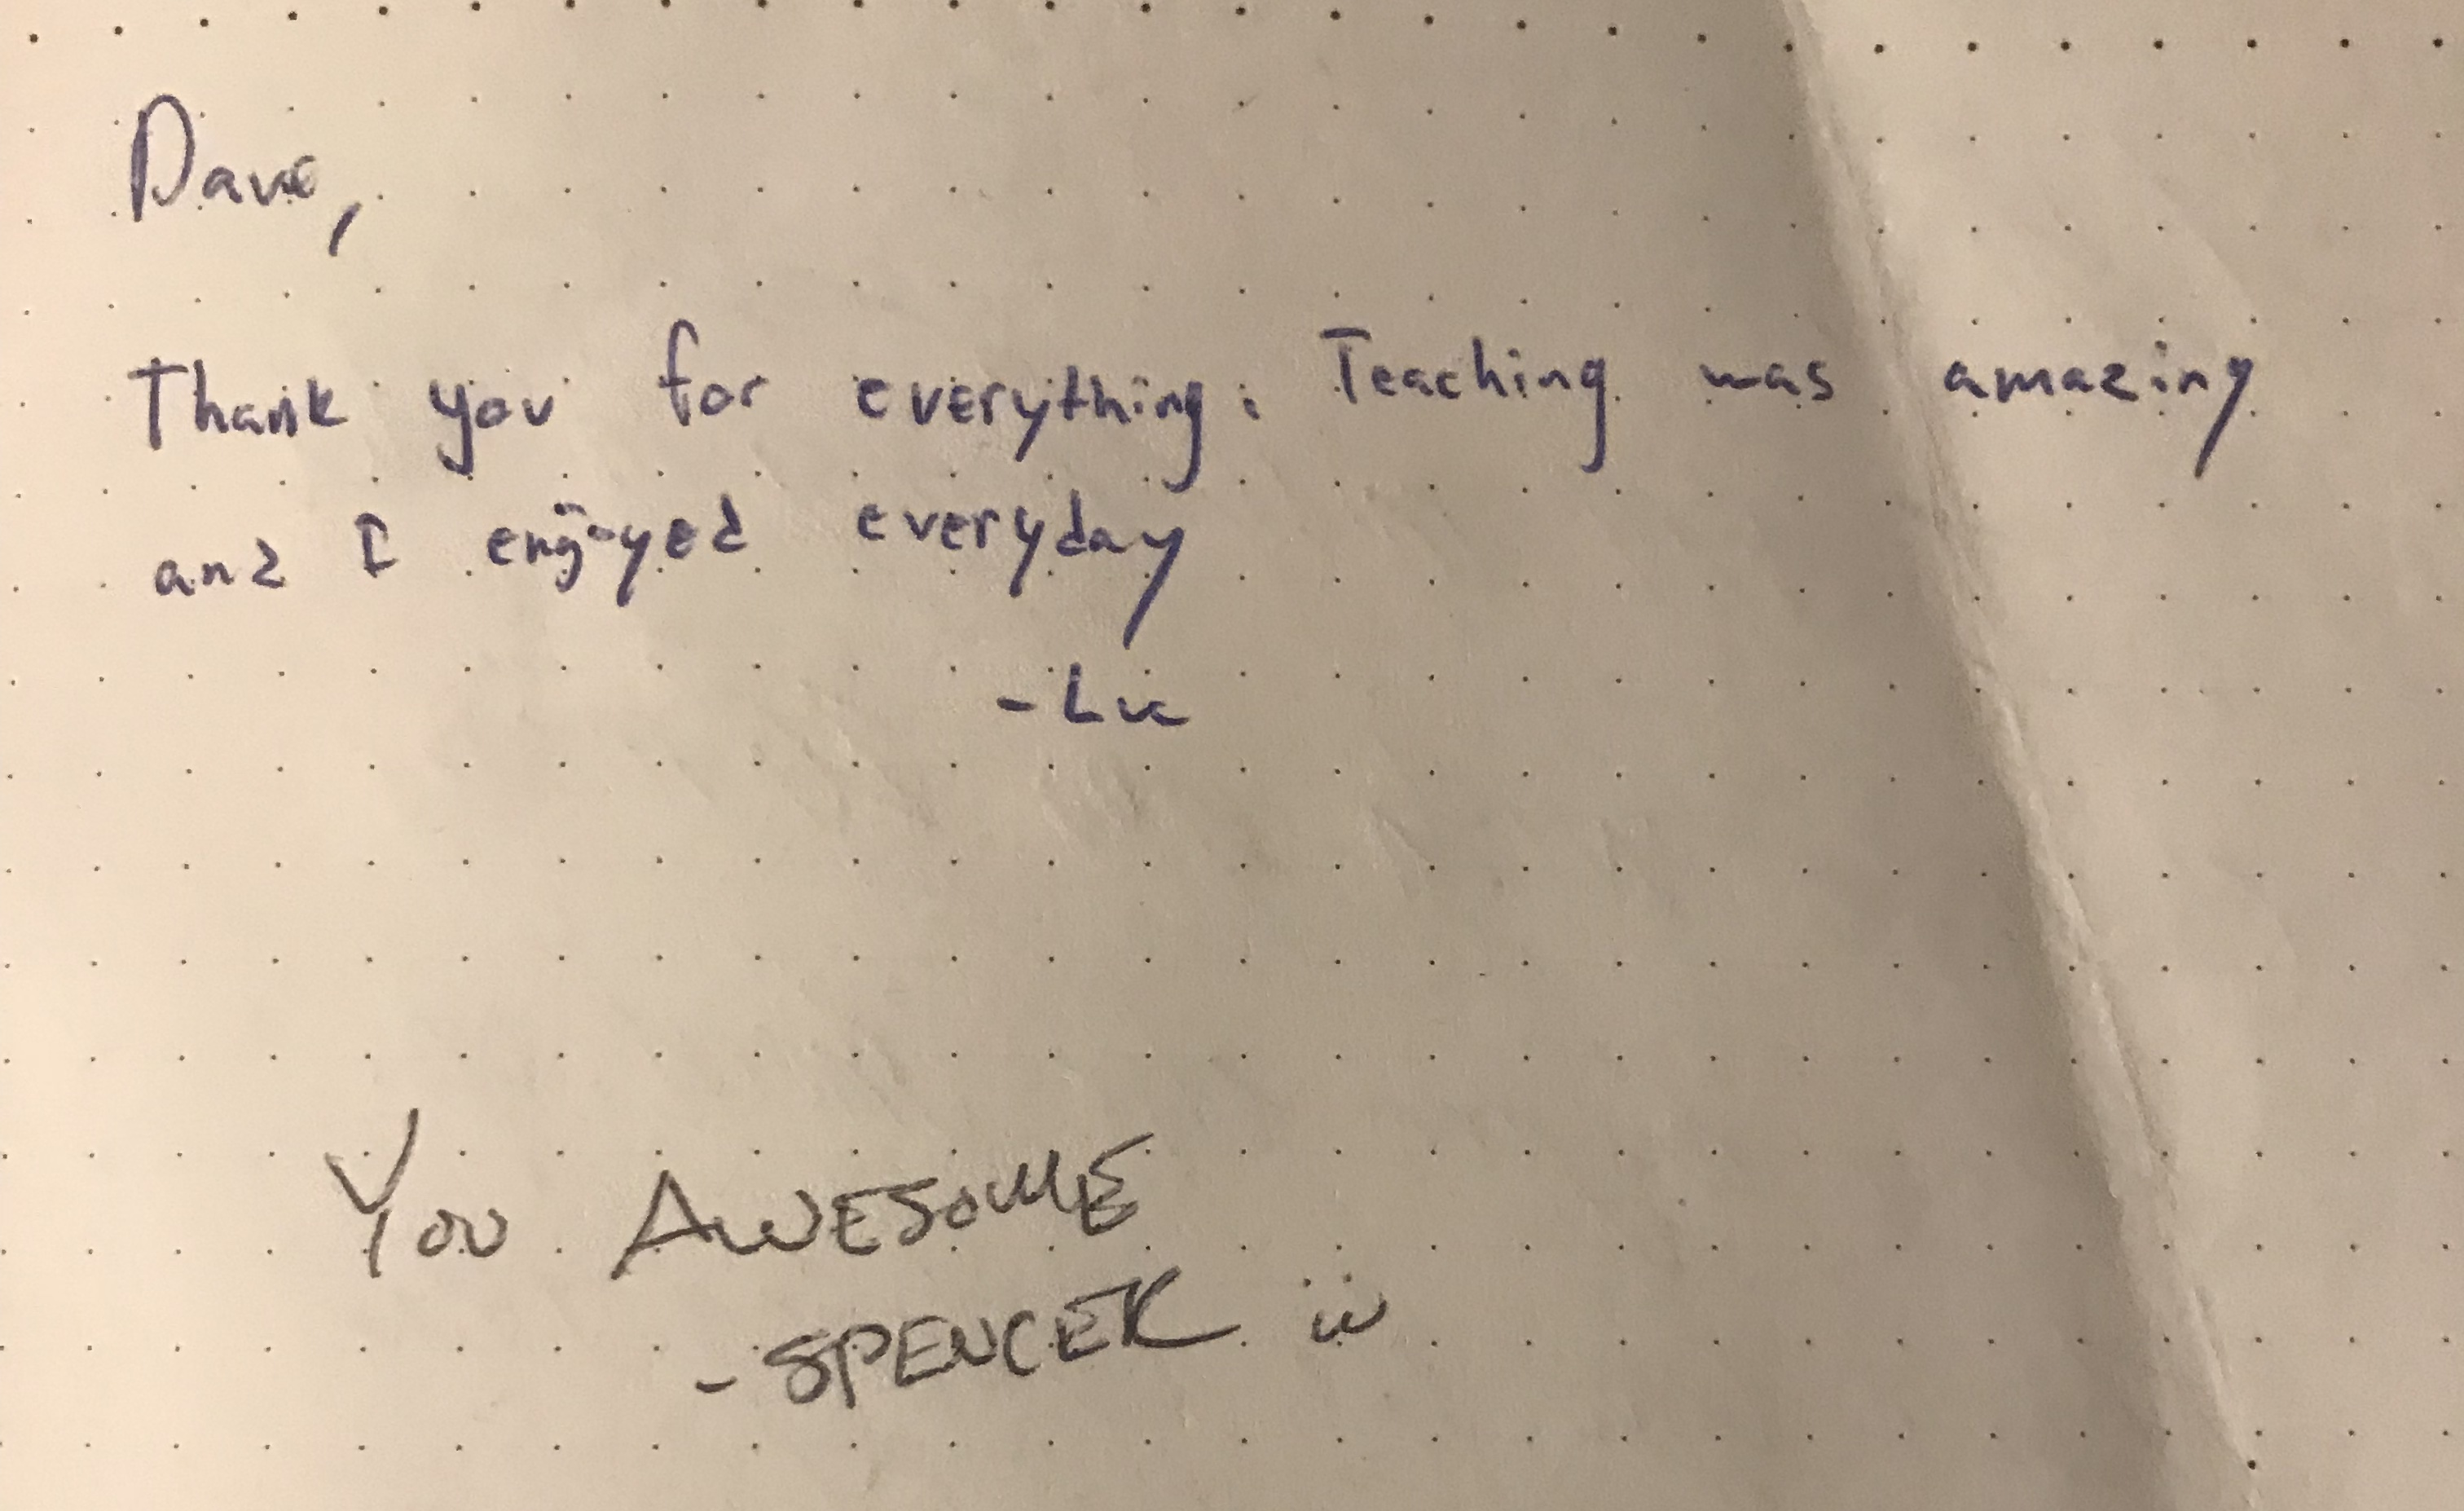 Dave,
Thank you for everything. Teaching was amazing
and I enjoyed everyday
- Luc
You AWESOME
- SPENCER